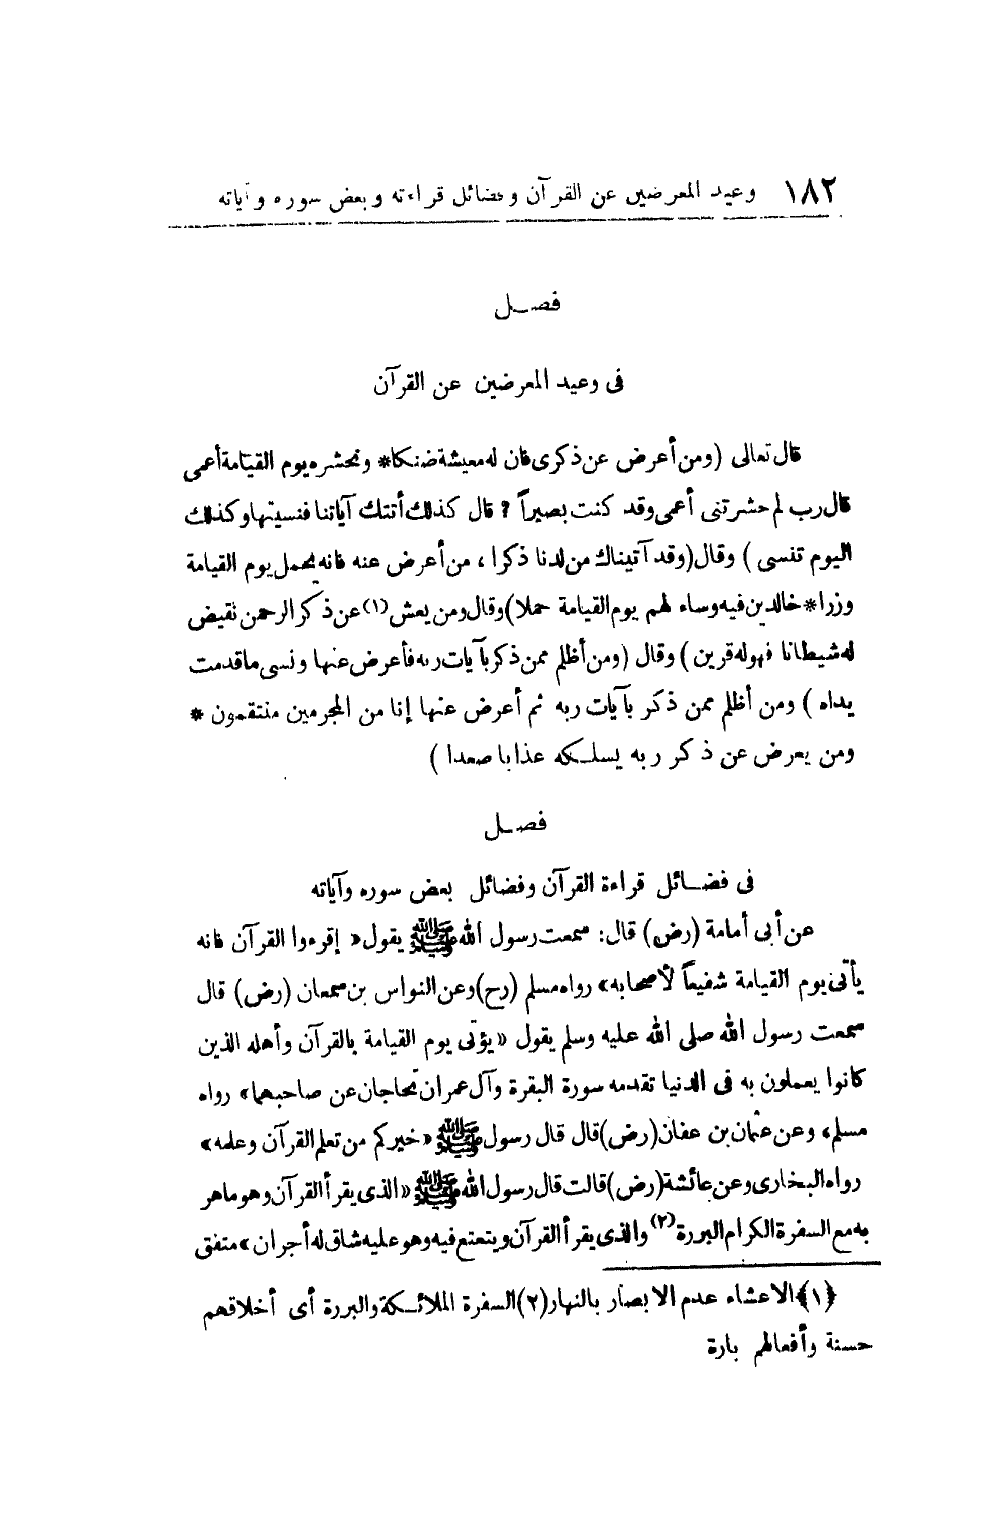 ١٨٢ وعيد المعرضين عن القرآن وفضائل قراءته وبعض سوره وآياته
فصل
فى وعيد المعرضين عن القرآن
قال تعالى (ومن أعرض عن ذكرى فان له معيشة ضنكا* ونحشره يوم القيامة أعمى
قال رب لم حشرتنى أعمى وقد كنت بصيراً ؟ قال كذلك أتتك آياتنا فنسيتها وكذلك
اليوم تنسى ) وقال (وقد آتيناك من لدنا ذكرا ، من أعرض عنه فانه يحمل يوم القيامة
وزرا* خالدين فيه وساء لهم يوم القيامة حملا) وقال ومن يعش (١) عن ذكر الرحمن نقيض
له شيطانا فهو له قرين ) وقال (ومن أظلم ممن ذكر بآيات ربه فأعرض عنها ونسى ماقدمت
يداه ) ومن أظلم ممن ذكر بآيات ربه ثم أعرض عنها إنا من المجرمين منتقمون *
ومن يعرض عن ذكر ربه يسلكه عذابا صعدا )
فصل
فى فضائل قراءة القرآن وفضائل بعض سوره وآياته
عن أبى أمامة (رض) قال: سمعت رسول الله ﷺ يقول « إقرءوا القرآن فانه
يأتى يوم القيامة شفيعاً لأصحابه» رواه مسلم (رح) وعن النواس بن سمعان (رض) قال
سمعت رسول الله صلى الله عليه وسلم يقول «يؤتى يوم القيامة بالقرآن وأهله الذين
كانوا يعملون به فى الدنيا تقدمه سورة البقرة وآل عمران تحاجان عن صاحبهما» رواه
مسلم، وعن عثمان بن عفان (رض) قال قال رسول ﷺ «خيركم من تعلم القرآن وعلمه»
رواه البخارى وعن عائشة (رض) قالت قال رسول الله ﷺ «الذى يقرأ القرآن وهو ماهر
به مع السفرة الكرام البررة (٢) والذى يقرأ القرآن ويتعتع فيه وهو عليه شاق له أجران» متفق
(١) الاعشاء عدم الابصار بالنهار (٢) السفرة الملائكة والبررة أى أخلاقهم
حسنة وأفعالهم بارة